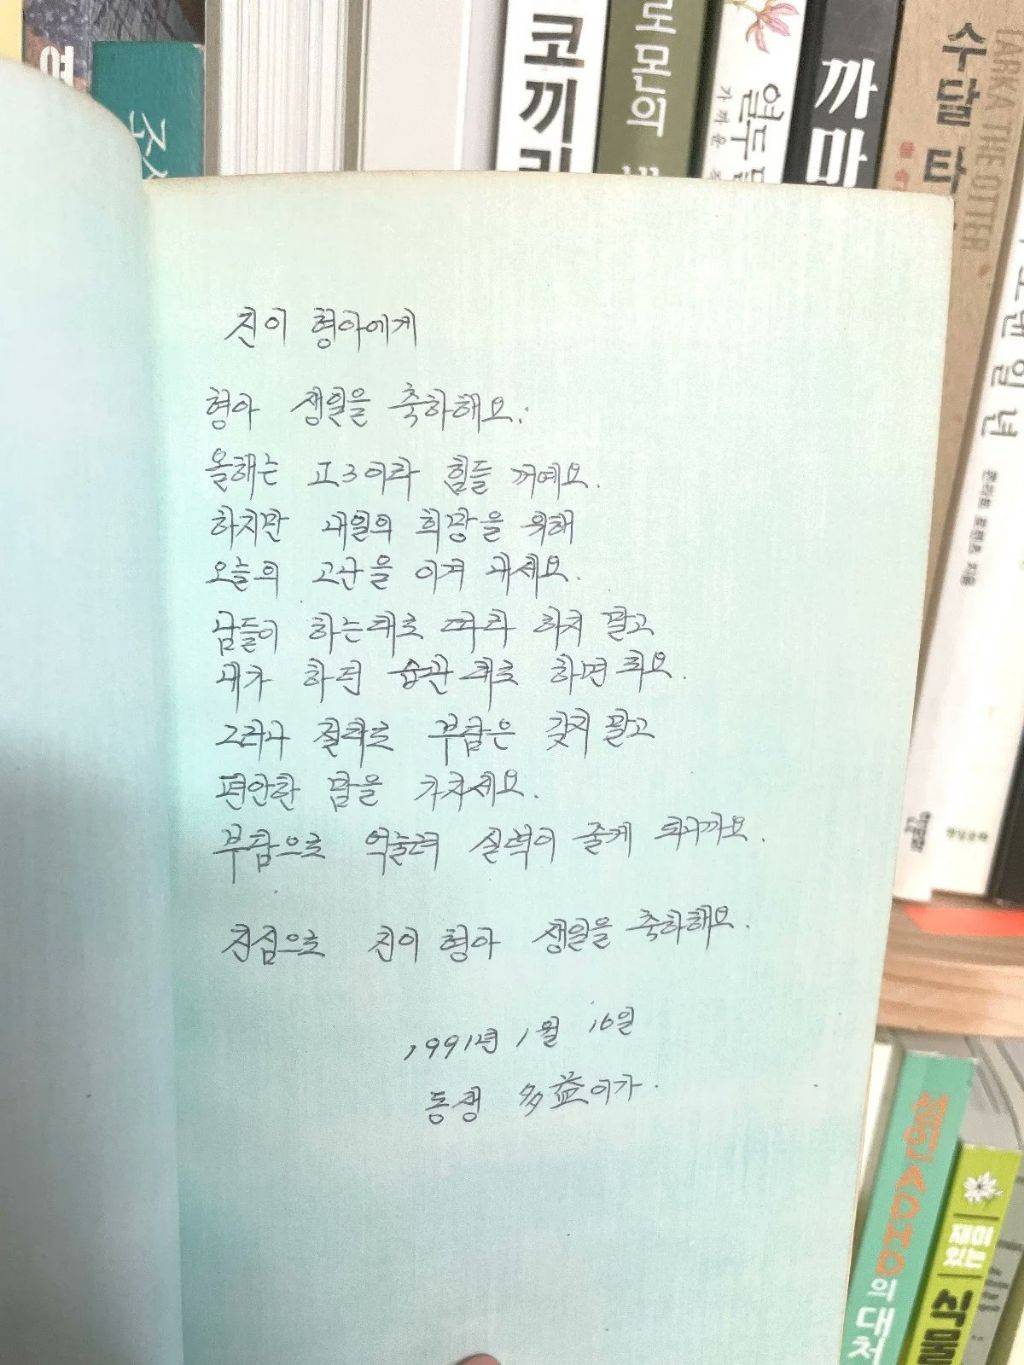 코끼리
로몬의
열두 달
가까운
까마
수달 타
TARKA THE OTTER
일 년
진이 형아에게
형아 생일을 축하해요.
올해는 고3이라 힘들 꺼예요.
하지만 내일의 희망을 위해
오늘의 고난을 이겨 내세요.
남들이 하는대로 따라 하지 말고
내가 하던 습관대로 하면 되요.
그러나 절대로 부담은 갖지 말고
편안한 맘을 가지세요.
부담으로 억눌려 실력이 줄게 되니까요.
진심으로 진이 형아 생일을 축하해요.
1991년 1월 16일
동생 多益이가.
성인 ADHD의 대처
재미있는
식물